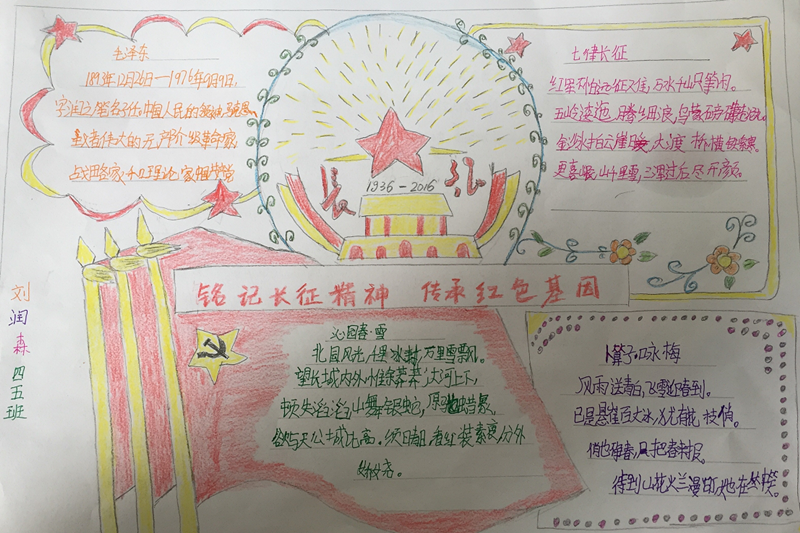 毛泽东
1893年12月26日—1976年9月9日,
字润之,笔名子任。中国人民的领袖,
伟大的无产阶级革命家
战略家,和理论家
七律长征
红军不怕远征难,万水千山只等闲。
五岭逶迤腾细浪,乌蒙磅礴走泥丸。
金沙水拍云崖暖,大渡桥横铁索寒。
更喜岷山千里雪,三军过后尽开颜。
长征
1936-2016
铭记长征精神 传承红色基因
沁园春·雪
北国风光,千里冰封,万里雪飘。
望长城内外,惟余莽莽,大河上下,
顿失滔滔,山舞银蛇,原驰蜡象,
欲与天公试比高。须晴日,看红装素裹,分外
妖娆。
卜算子·咏梅
风雨送春归,飞雪迎春到。
已是悬崖百丈冰,犹有花枝俏。
俏也不争春,只把春来报。
待到山花烂漫时,她在丛中笑。
刘润森四五班